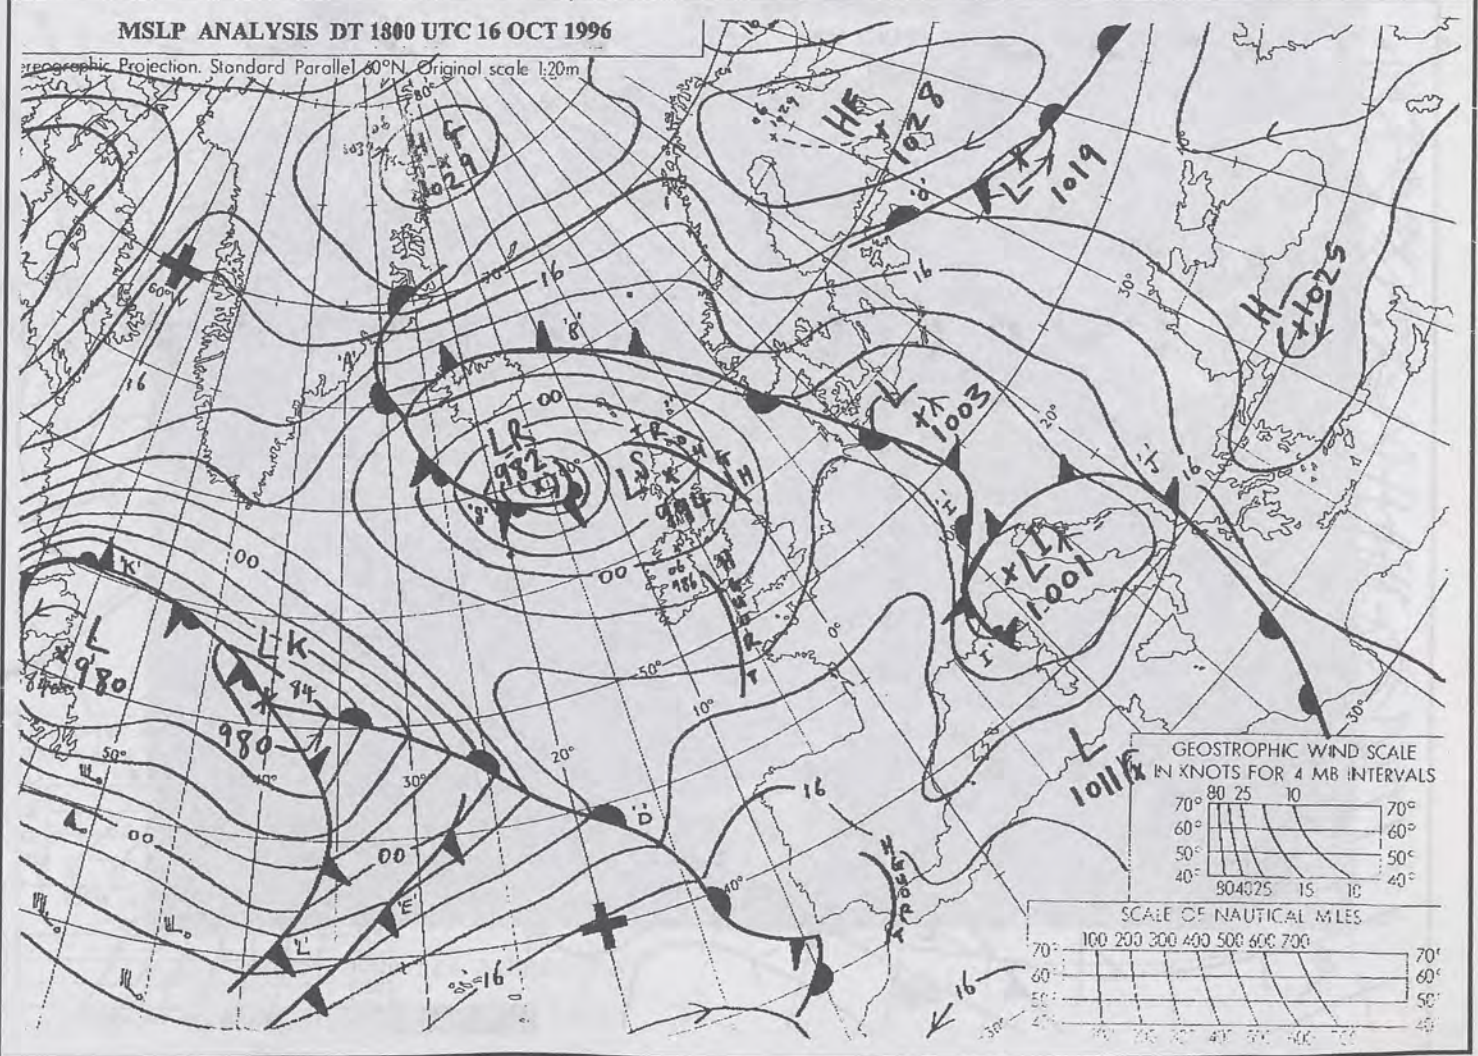 MSLP ANALYSIS DT 1800 UTC 16 OCT 1996
ereographic Projection. Standard Parallel 60°N. Original scale 1:20m
80°
H G
1029
HF
1028
L X
1019
'O'
H
1025
60°N
70°
16
16
30°
16
'A'
'B'
00
L
1003
20°
'J'
16
LR
982
LS
994
'B'
'H'
00
06
986
LI
1001
'I'
00
'K'
L
980
84
LK
84
980
50°
40°
30°
20°
10°
0°
50°
'D
16
40°
L
1011
30°
00
00
'E'
'L'
16
16
30°
GEOSTROPHIC WIND SCALE
IN KNOTS FOR 4 MB INTERVALS
80 25 10
70° 70°
60° 60°
50° 50°
40° 40°
804025 15 10
SCALE OF NAUTICAL MILES
100 200 300 400 500 600 700
70° 70°
60° 60°
50° 50°